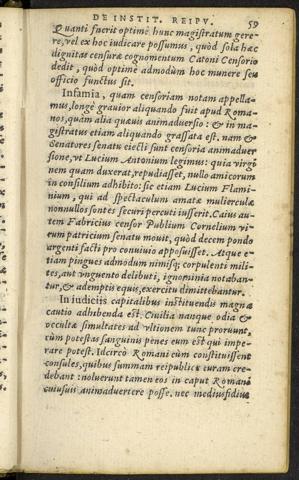 DE INSTIT. REIPV. 59
Quanti fuerit optimè hunc magistratum gere-
re, vel ex hoc iudicare possumus, quòd sola hæc
dignitas censuræ cognomentum Catoni Censorio
dedit, quòd optimè admodùm hoc munere seu
officio functus sit.
Infamia, quam censoriam notam appella-
mus, longè grauior aliquando fuit apud Roma-
nos, quàm alia quæuis animaduersio: & in ma-
gistratus etiam aliquando grassata est. nam &
Senatores senatu eiecti sunt censoria animaduer
sione, vt Lucium Antonium legimus: quia virgi-
nem quam duxerat, repudiasset, nullo amicorum
in consilium adhibito: sic etiam Lucium Flami-
nium, qui ad spectaculum amatæ mulierculæ
nonnullos sontes securi percuti iusserit. Caius au-
tem Fabricius censor Publium Cornelium vi-
rum patricium senatu mouit, quòd decem pondo
argenti facti pro conuiuio apposuisset. Atque e-
tiam pingues admodum nimisq; corpulenti mili-
tes, aut vnguento delibuti, ignominia notaban-
tur, & ademptis equis, exercitu dimittebantur.
In iudiciis capitalibus instituendis magna
cautio adhibenda est. Ciuilia nanque odia &
occultæ simultates ad vltionem tunc proruunt,
cùm potestas sanguinis penes eum est qui impe-
rare potest. Idcircò Romani cùm constituissent
consules, quibus summam reipublicæ curam cre-
debant: noluerunt tamen eos in caput Romani
cuiusuis animaduertere posse. nec mediusfidius